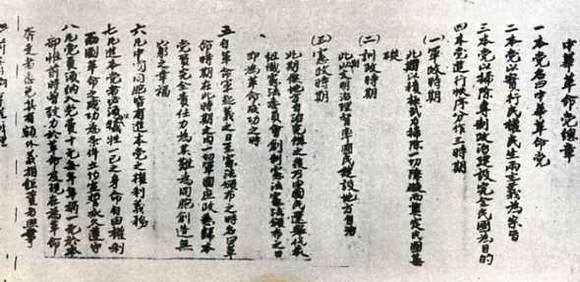 中華革命黨總章
一 本黨名曰中華革命黨
二 本黨以實行民權民生兩主義為宗旨
三 本黨以掃除專制政治建設完全民國為目的
四 本黨進行秩序分作三時期
(一)軍政時期
此期以積極武力掃除一切障礙而奠定民國基
礎
(二)訓政時期
此期以文明治理督率國民建設地方自治
(三)憲政時期
此期俟地方自治完備之後乃由國民選舉代表
組織憲法委員會創制憲法憲法頒布之日
即為革命成功之時
五 自革命軍起義之日至憲法頒布之時名曰革
命時期在此時期之內一切軍國庶政悉歸本
黨黨員負完全責任力為其難為同胞創造無
窮之幸福
六 凡中國同胞皆有進本黨之權利義務
七 凡進本黨者必須以犧牲一己之身命自由權利
而圖革命之成功為條件立約宣誓永久遵守
八 凡黨員須納入黨費十元每年年捐一元於本
部惟前時曾致力於革命及現在為革命
奔走者其有額外義捐